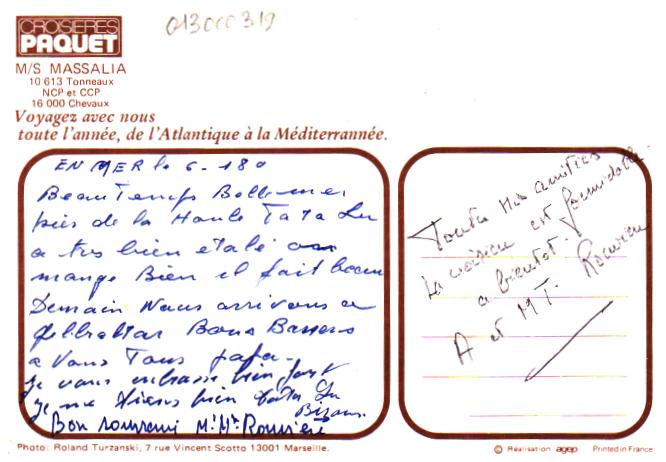 013000319
CROISIÈRES
PAQUET
M/S MASSALIA
10 613 Tonneaux
NCP et CCP
16 000 Chevaux
Voyagez avec nous
toute l'année, de l'Atlantique à la Méditerrannée.
EN MER le 6. 180
Beau Temps Belle mer
pies de la Houle Tata Lu
a tres bien etalé on
mange Bien il fait beau
Demain Nous arrivons a
Gilbraltar Bons Baisers
a Vous Tous papa-
je vous embrasse bien fort
je me tiens bien tata Lu
Bisous
Bon souvenir Mr Me Rouvière
Toutes mes amitiés
La croisière est formidable
a bientot.
A et MT. Rouvière
Photo: Roland Turzanski, 7 rue Vincent Scotto 13001 Marseille.
© Réalisation agep Printed in France